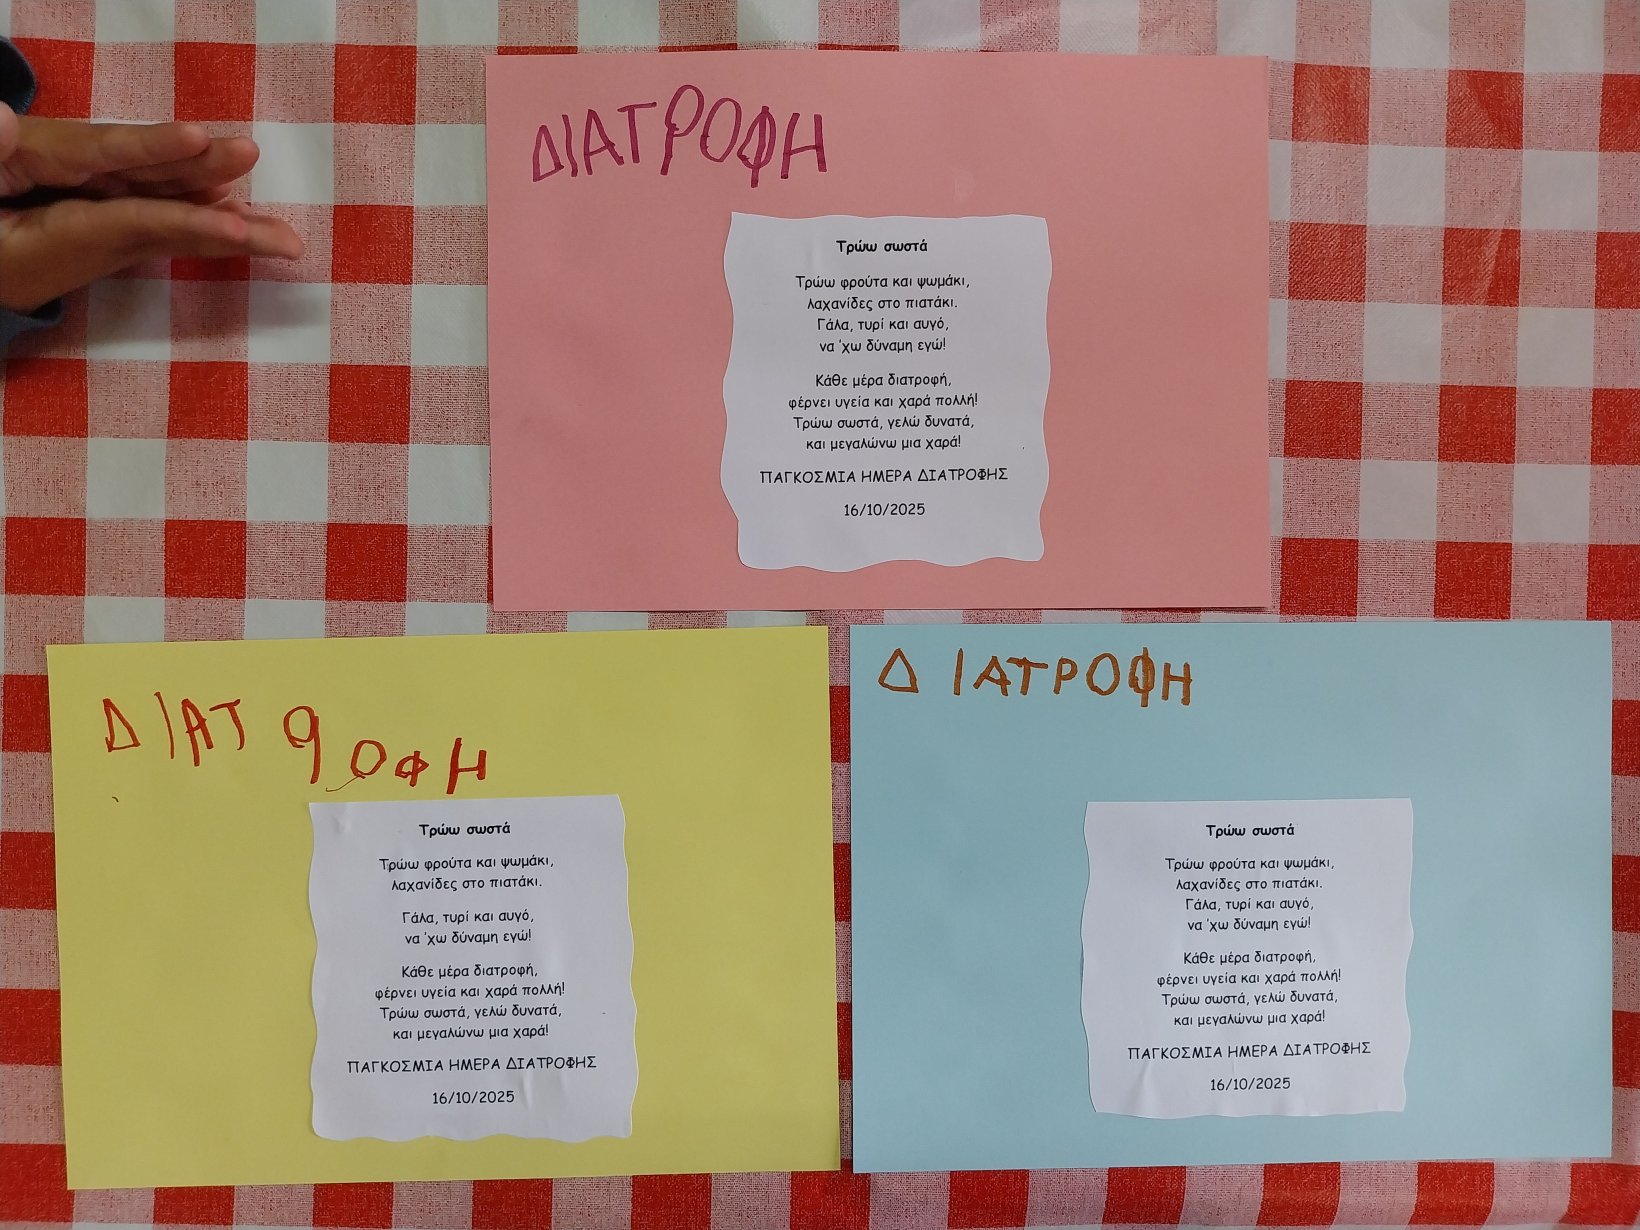 ΔΙΑΤΡΟΦΗ
Τρώω σωστά
Τρώω φρούτα και ψωμάκι,
λαχανίδες στο πιατάκι.
Γάλα, τυρί και αυγό,
να 'χω δύναμη εγώ!
Κάθε μέρα διατροφή,
φέρνει υγεία και χαρά πολλή!
Τρώω σωστά, γελώ δυνατά,
και μεγαλώνω μια χαρά!
ΠΑΓΚΟΣΜΙΑ ΗΜΕΡΑ ΔΙΑΤΡΟΦΗΣ
16/10/2025
ΔΙΑΤΡΟΦΗ
Τρώω σωστά
Τρώω φρούτα και ψωμάκι,
λαχανίδες στο πιατάκι.
Γάλα, τυρί και αυγό,
να 'χω δύναμη εγώ!
Κάθε μέρα διατροφή,
φέρνει υγεία και χαρά πολλή!
Τρώω σωστά, γελώ δυνατά,
και μεγαλώνω μια χαρά!
ΠΑΓΚΟΣΜΙΑ ΗΜΕΡΑ ΔΙΑΤΡΟΦΗΣ
16/10/2025
ΔΙΑΤΡΟΦΗ
Τρώω σωστά
Τρώω φρούτα και ψωμάκι,
λαχανίδες στο πιατάκι.
Γάλα, τυρί και αυγό,
να 'χω δύναμη εγώ!
Κάθε μέρα διατροφή,
φέρνει υγεία και χαρά πολλή!
Τρώω σωστά, γελώ δυνατά,
και μεγαλώνω μια χαρά!
ΠΑΓΚΟΣΜΙΑ ΗΜΕΡΑ ΔΙΑΤΡΟΦΗΣ
16/10/2025